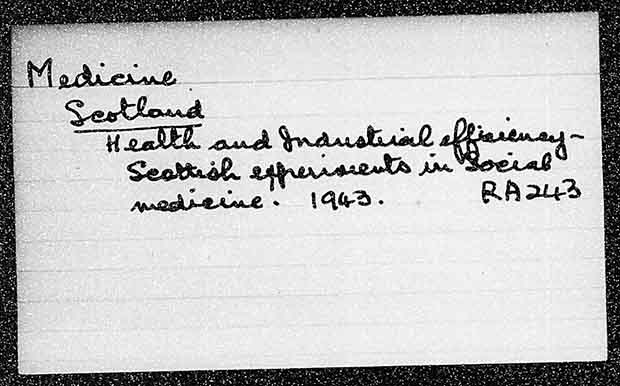 Medicine
Scotland
Health and Industrial efficiency -
Scottish experiments in Social
medicine. 1943. RA243